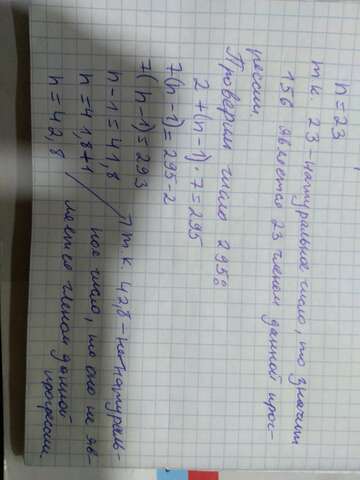 n = 23
т.к. 23 натуральное число, то значит
156 является 23 членом данной прог-
рессии.
Проверим число 295:
2 + (n - 1) · 7 = 295
7(n - 1) = 295 - 2
7(n - 1) = 293
n - 1 = 41,8
n = 41,8 + 1
n = 42,8
т.к. 42,8 - не натураль-
ное число, то оно не яв-
ляется членом данной
прогрессии.